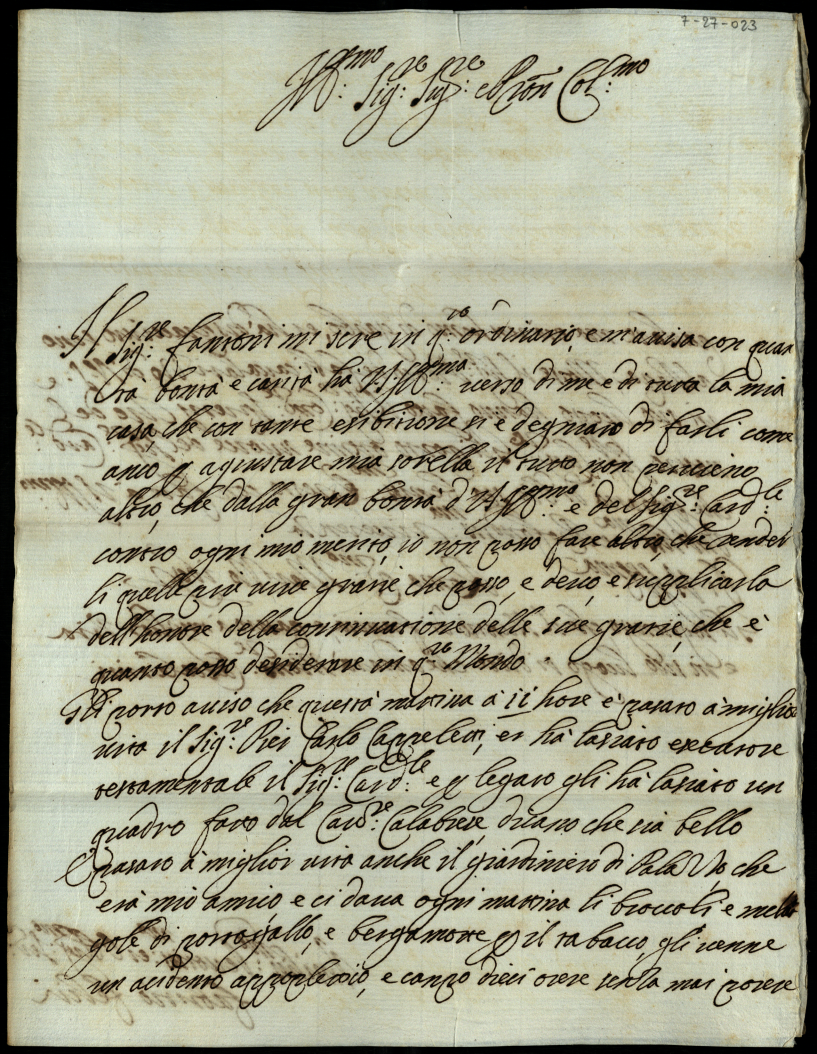 7-27-023
Ill:mo Sig:re Sig:re e Pron Col:mo
Il Sig:re Fantoni mi scrive in q:to ordinario, e m'avisa con quan
ta bontà e carità hà V.S. Ill:ma verso di me e di tutta la mia
casa, che con tante esibitione si e degnato di farli
anco p agiustare mia sorella il tutto non
altro, che dalla gran bontà d'V.S. Ill:ma e del Sig:re Card:le
contro ogni mio merito, io non posso fare altro, che render
li quelle più vive gratie che posso, e devo, e supplicarla
dell'honore della continuatione delle sue gratie, che è
quanto posso desiderare in q:to Mondo
Gli porto aviso che questa mattina à 11 hore è pasato à miglior
vita il Sig:re Pier Carlo Cappelletti, et hà lasciato
testamentale il Sig:re Card:le e p legato gli hà lasciato un
quadro fatto dal Calabrese, dicano che sia bello
E pasato à miglior vita anche il giardiniero di che
era mio amico e ci dava ogni mattina li broccoli e
gole di portogallo, e bergamotte p il tabacco, gli venne
un acidente apopletico, e campò dieci orere senza mai potere